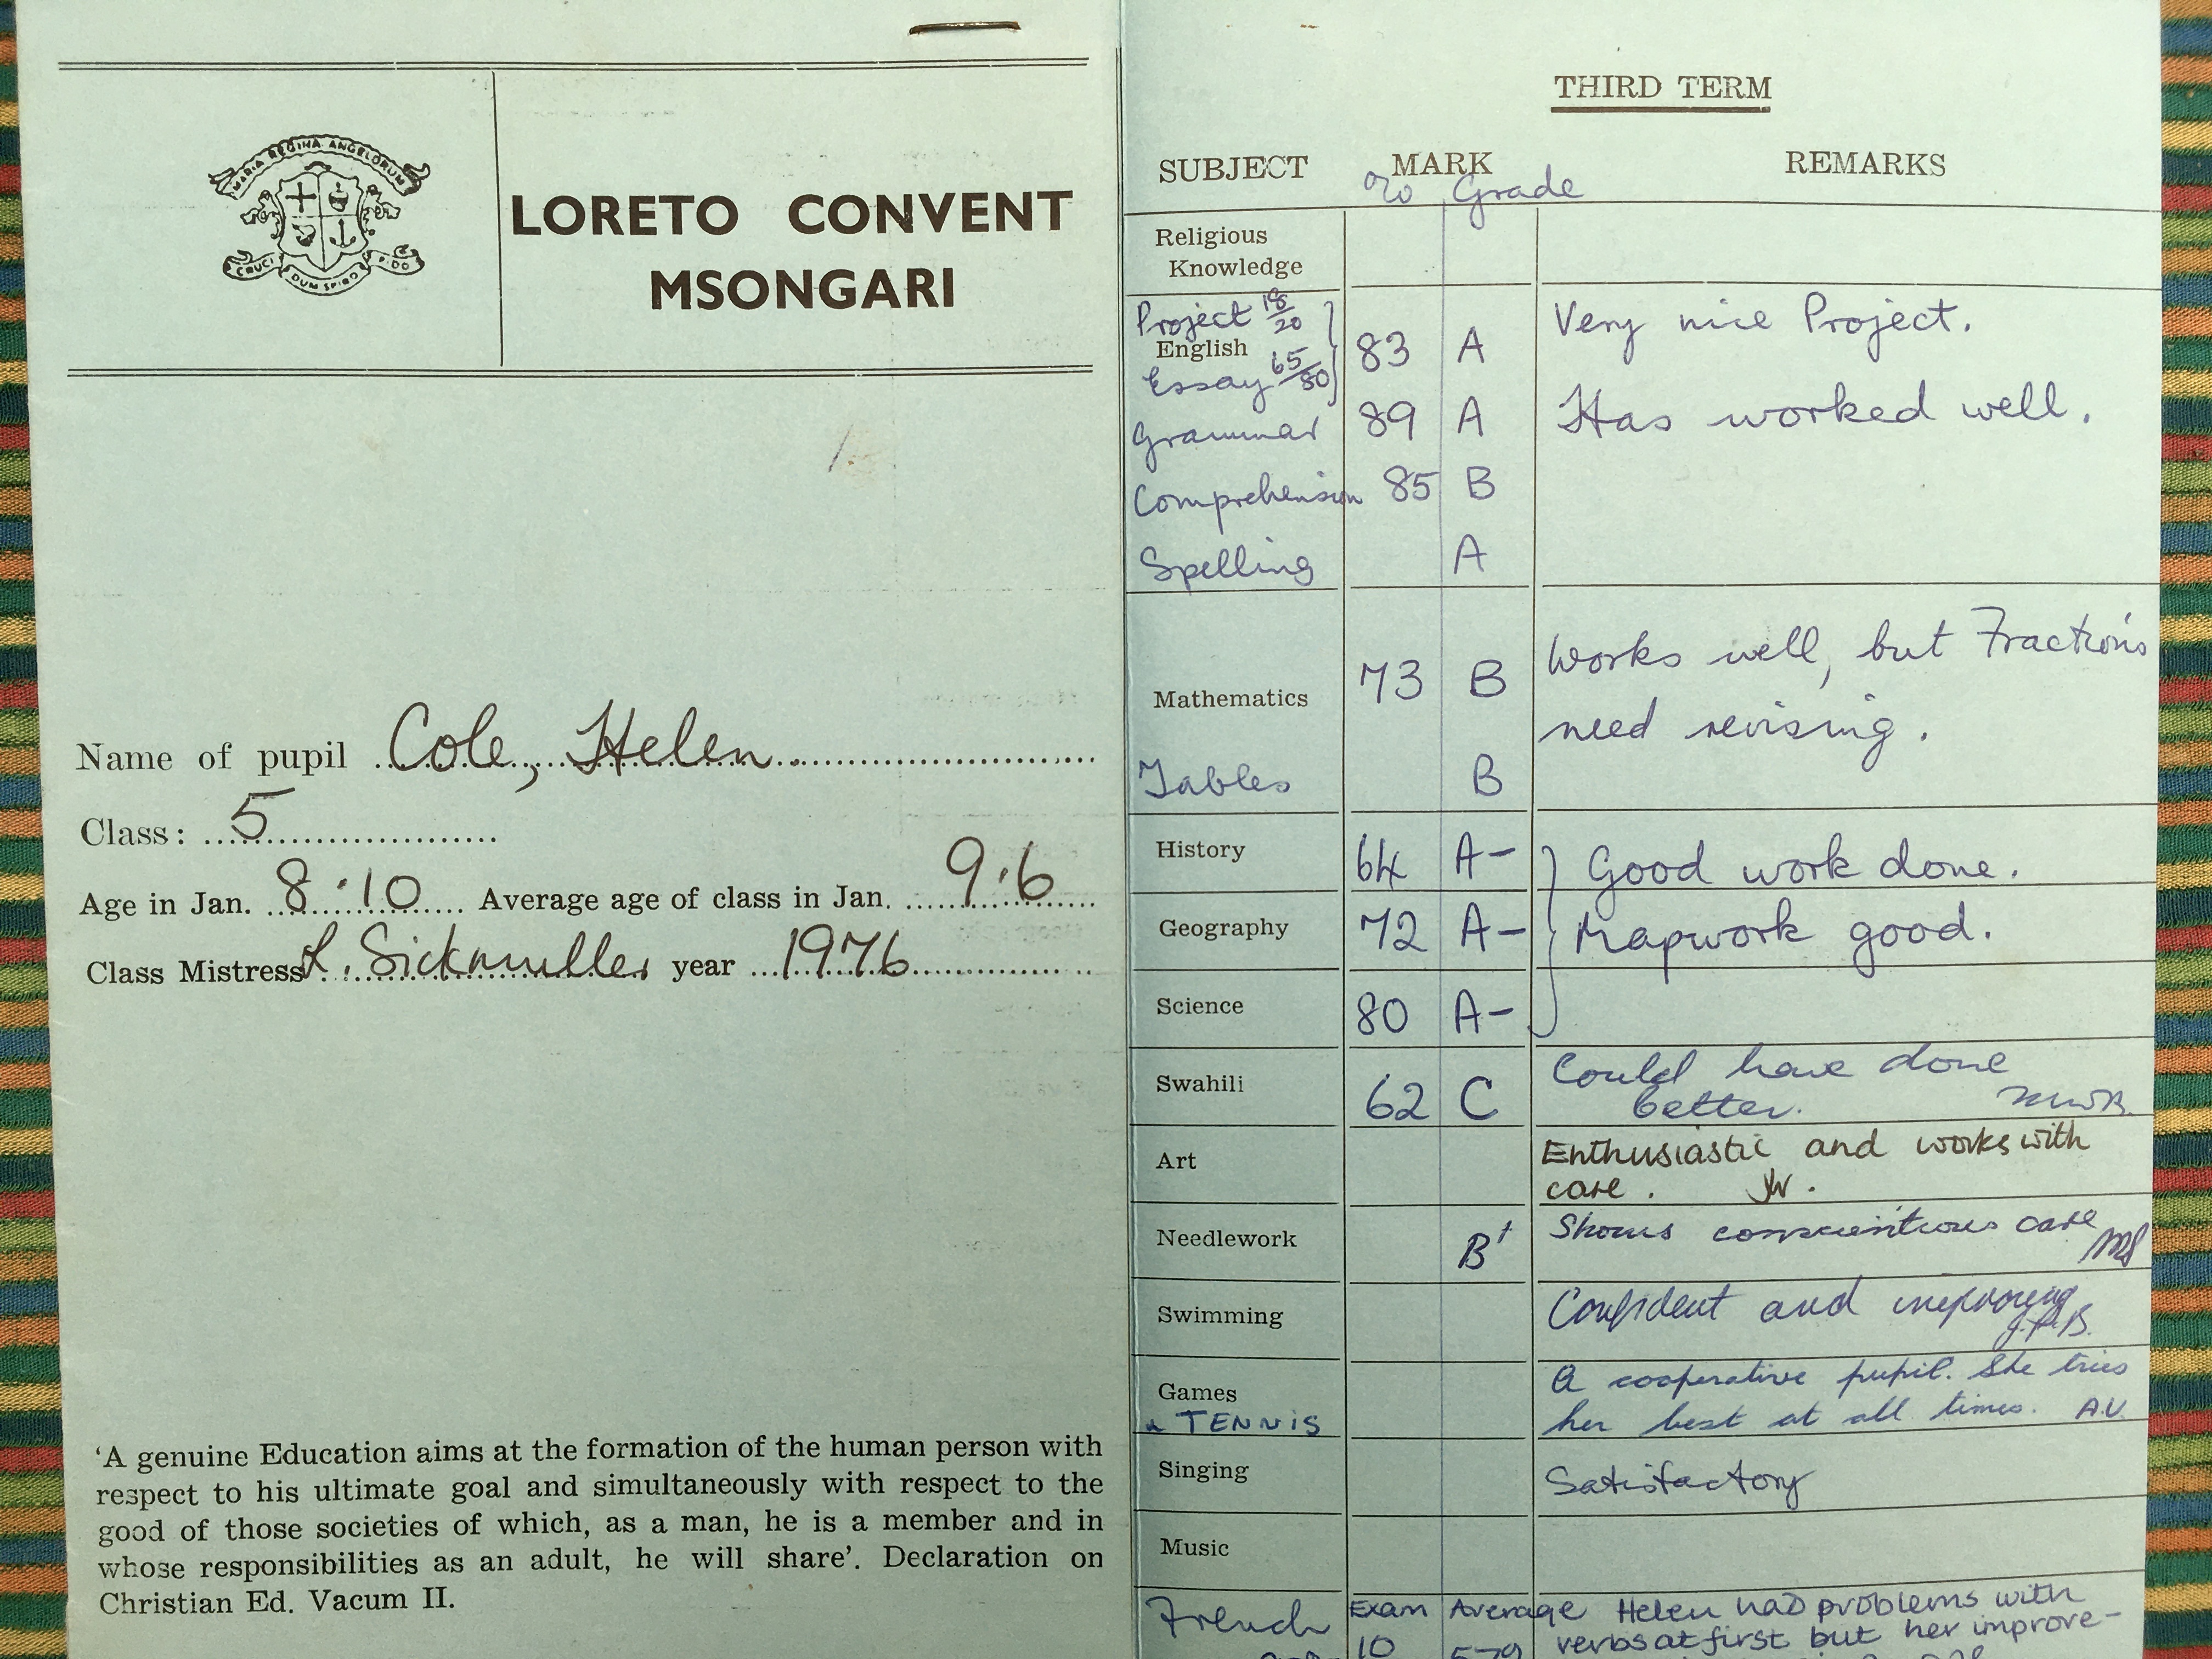 MARIA REGINA ANGELORUM
CRUCI DUM SPIRO FIDO
LORETO CONVENT
MSONGARI
Name of pupil Cole, Helen
Class: 5
Age in Jan. 8.10 Average age of class in Jan. 9.6
Class Mistress L. Sickmuller year 1976
'A genuine Education aims at the formation of the human person with
respect to his ultimate goal and simultaneously with respect to the
good of those societies of which, as a man, he is a member and in
whose responsibilities as an adult, he will share'. Declaration on
Christian Ed. Vacum II.
THIRD TERM
SUBJECT MARK REMARKS
% Grade
Religious
Knowledge
Project 18/20 Very nice Project.
English 83 A
Essay 65/80
Grammar 89 A Has worked well.
Comprehension 85 B
Spelling A
Works well, but Fractions
Mathematics 73 B
need revising.
Tables B
History 64 A- Good work done.
Geography 72 A- Mapwork good.
Science 80 A-
Swahili 62 C Could have done
better.
Art Enthusiastic and works with
care. JW.
Needlework B+ Shows conscientious care
Swimming Confident and improving
Games A cooperative pupil. She tries
TENNIS her best at all times. A.V.
Singing Satisfactory
Music
French Exam Average Helen had problems with
10 verbs at first but her improve-